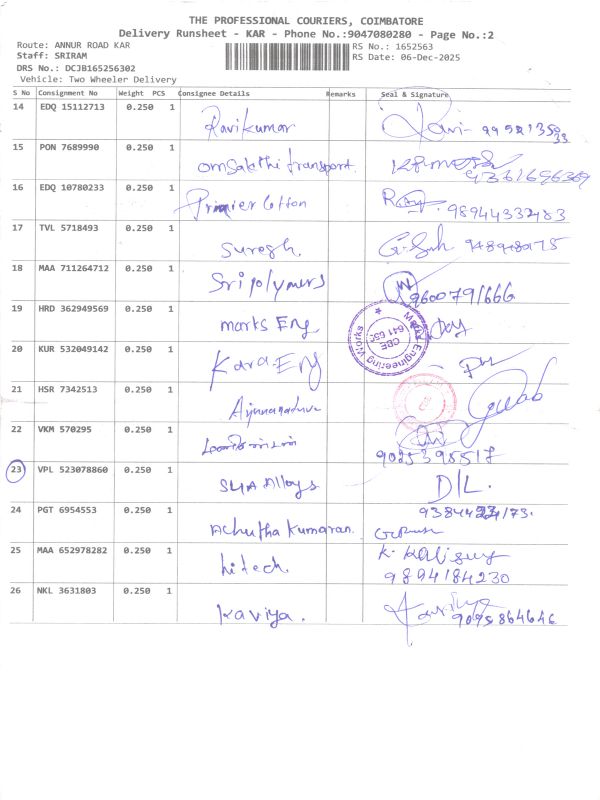 THE PROFESSIONAL COURIERS, COIMBATORE
Delivery Runsheet - KAR - Phone No.:9047080280 - Page No.:2
Route: ANNUR ROAD KAR RS No.: 1652563
Staff: SRIRAM RS Date: 06-Dec-2025
DRS No.: DCJB165256302
Vehicle: Two Wheeler Delivery
S No Consignment No Weight PCS Consignee Details Remarks Seal & Signature
14 EDQ 15112713 0.250 1
Ravikumar Ravi
15 PON 7689990 0.250 1
omsakthi transport.
16 EDQ 10780233 0.250 1
Premier Cotton 98944332483
17 TVL 5718493 0.250 1
Suresh.
18 MAA 711264712 0.250 1
Sri polymers 9600791666
19 HRD 362949569 0.250 1
marks Eng
Marks Engineering Works
CBE
20 KUR 532049142 0.250 1
Kara. Eng
21 HSR 7342513 0.250 1
22 VKM 570295 0.250 1
9025395517
23 VPL 523078860 0.250 1
Alloys D/L.
24 PGT 6954553 0.250 1
Achutha kumaran.
25 MAA 652978282 0.250 1 K.
hitech. 9894184230
26 NKL 3631803 0.250 1
kaviya. 9095864646